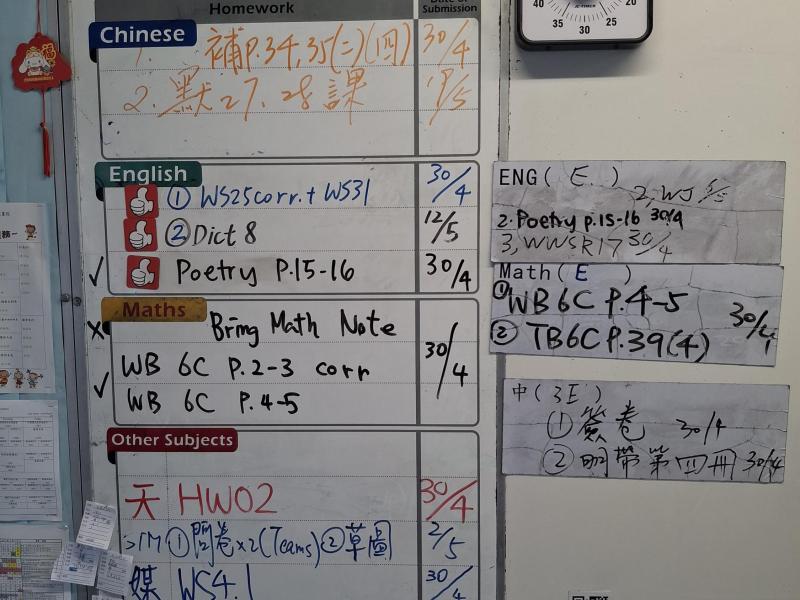 Homework
Date of Submission
Chinese
1. 補P.34,35(二)(四) 30/4
2. 默27、28課 19/5
English
① WS25corr.+ WS31 30/4
② Dict 8 12/5
Poetry P.15-16 30/4
Maths
Bring Math Note
WB 6C P.2-3 corr 30/4
WB 6C P.4-5
Other Subjects
天 HW02 30/4
①問卷x2(Teams)②草圖 2/5
媒 WS4.1 30/4
40
35
30
25
ENG( E )
2, WJ 5/5
2. Poetry p.15-16 30/4
3, WWSR17 30/4
Math( E )
① WB 6C P.4-5 30/4
② TB6C P.39(4)
中(3E)
① 簽卷 30/4
② 明帶第四冊 30/4